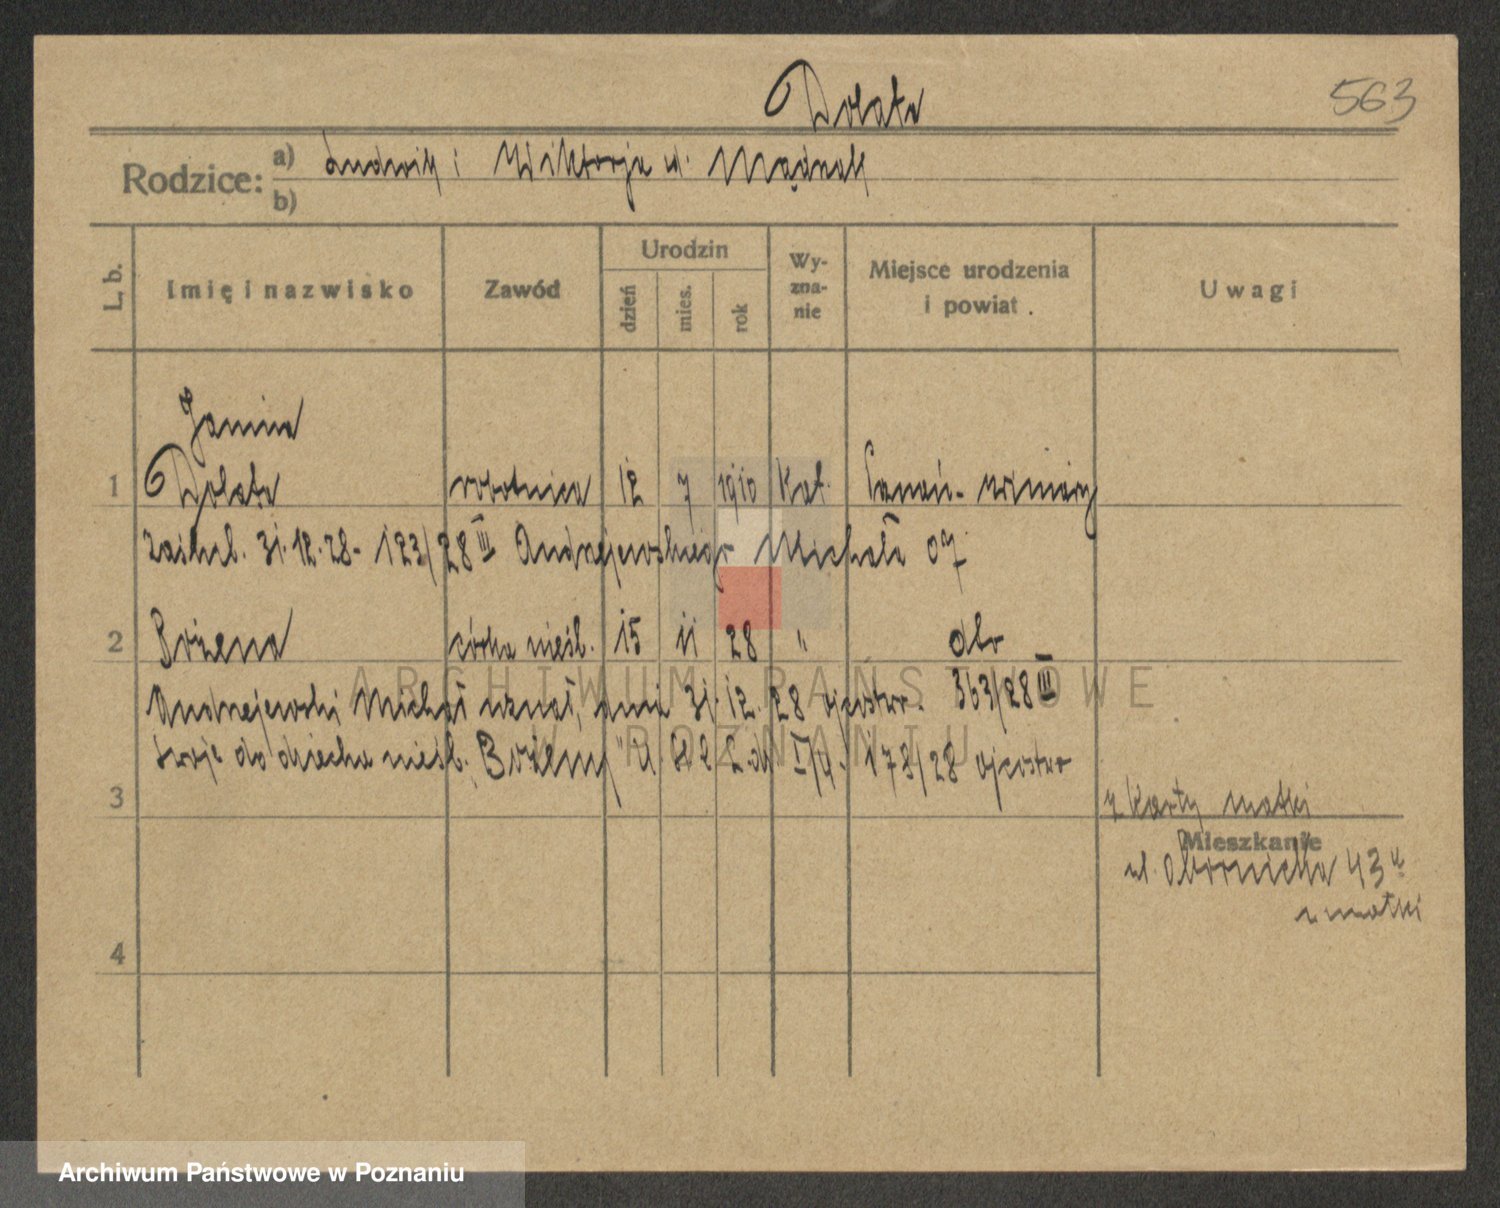 Dolata
563
Rodzice:
a) Ludwik i Wiktorja u.
b)
L. b.
Imię i nazwisko
Zawód
Urodzin
dzień
mies.
rok
Wy-
zna-
nie
Miejsce urodzenia
i powiat.
Uwagi
Janina
1 Dolata robotnica 12 7 1910 Kat. Poznań - Winiary
zaślub. 31.12.28 - 123/28 III Andrzejewskiego Michała 07
2 Bożena córka nieśl. 15 11 28 " dto
Andrzejewski Michał uznał, dnia 31.12.28 ojcostwo. 363/28 III
swoje do dziecka nieśl. Bożeny 173/28 ojcostwo
3
z karty matki
Mieszkanie
ul. Obornicka 43
u matki
4
ARCHIWUM PAŃSTWOWE
W POZNANIU
Archiwum Państwowe w Poznaniu